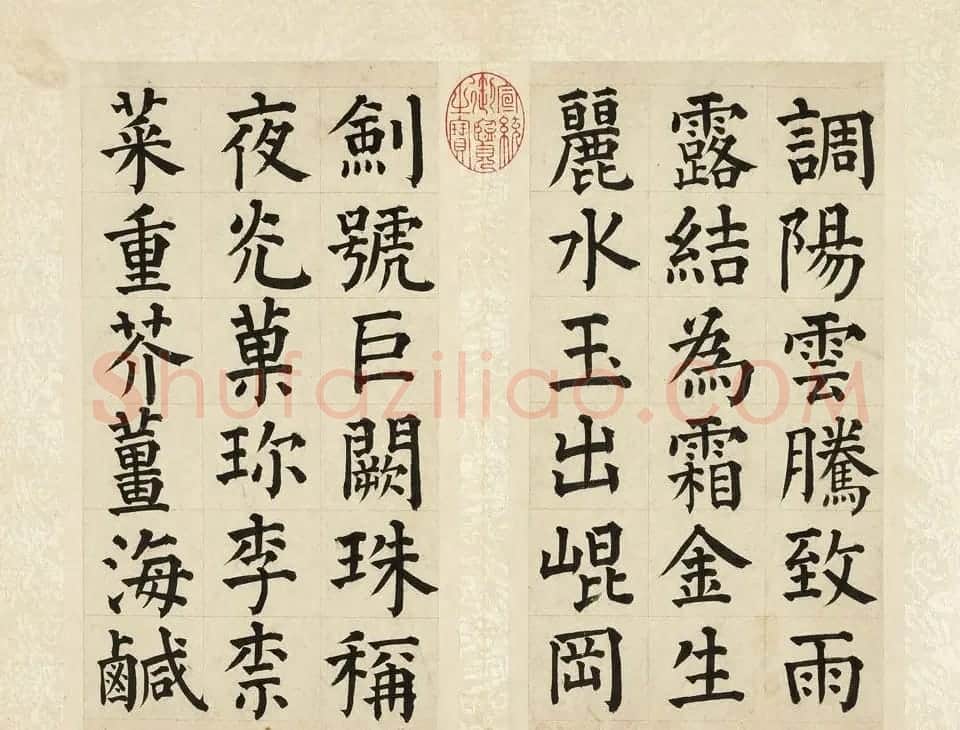 調陽雲騰致雨
露結為霜金生
麗水玉出崐岡
劍號巨闕珠稱
夜光菓珎李柰
菜重芥薑海鹹
宣統御覽之寶
Shufaziliao.COM